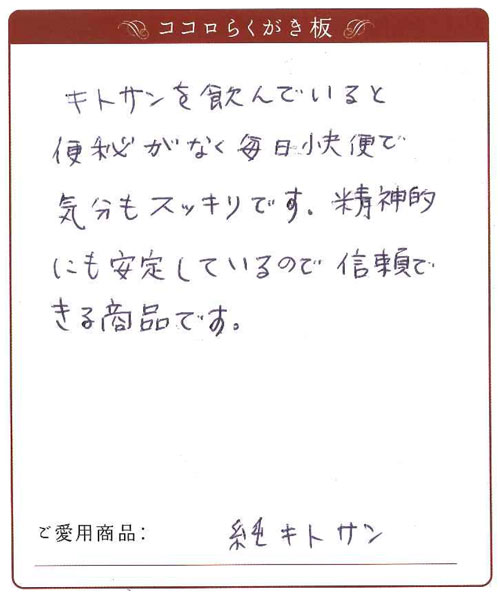 ココロらくがき板
キトサンを飲んでいると
便秘がなく毎日快便で
気分もスッキリです。精神的
にも安定しているので信頼で
きる商品です。
ご愛用商品： 純キトサン